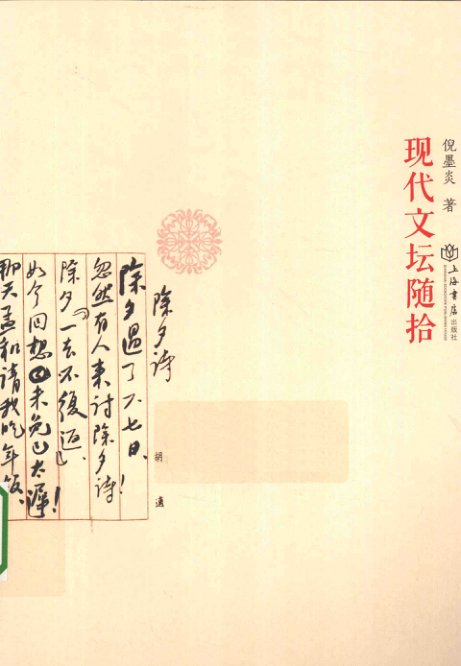 现代文坛随拾
倪墨炎 著
上海书店出版社
除夕诗
胡适
除夕过了六七日、
忽然有人来讨除夕诗！
除夕「一去不復返」、
如今回想未免已太遲！
那天孟和请我吃年饭、